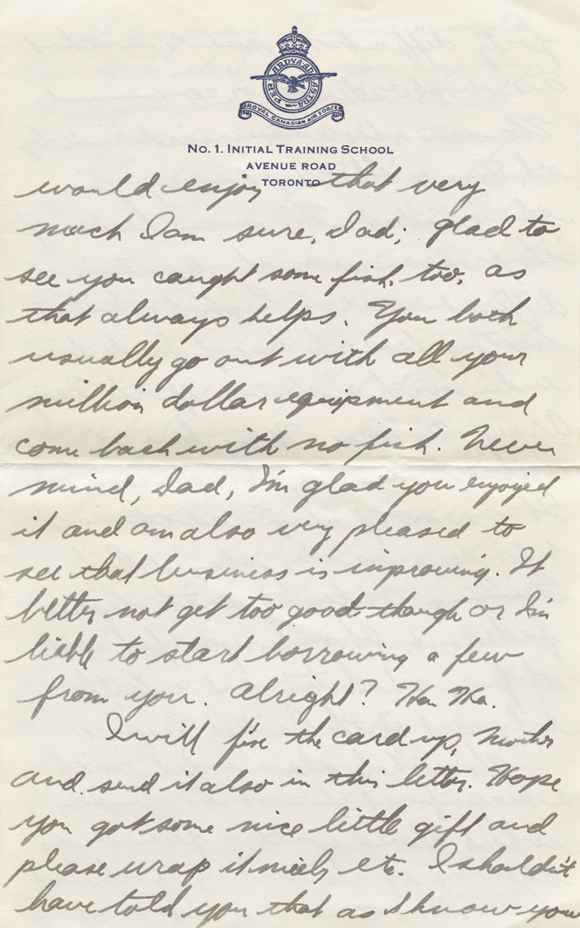 ROYAL CANADIAN AIR FORCE
No. 1. INITIAL TRAINING SCHOOL
AVENUE ROAD
TORONTO
would enjoy that very
much I am sure, Dad; glad to
see you caught some fish, too, as
that always helps. You both
usually go out with all your
million dollar equipment and
come back with no fish. Never
mind, Dad, I'm glad you enjoyed
it and am also very pleased to
see that business is improving. It
better not get too good though or I'm
liable to start borrowing a few
from you. Alright? Ha. Ha.
I will fix the card up, Mother
and send it also in this letter. Hope
you got some nice little gift and
please wrap it nicely etc. I shouldn't
have told you that as I know you